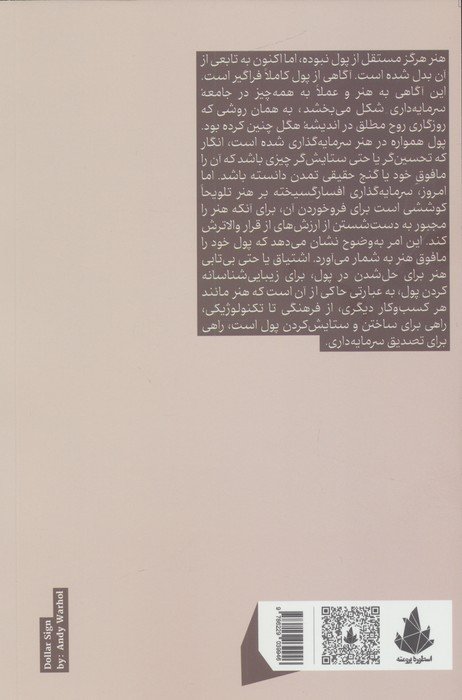 هنر هرگز مستقل از پول نبوده، اما اکنون به تابعی از
آن بدل شده است. آگاهی از پول کاملاً فراگیر است.
این آگاهی به هنر و عملاً به همه‌چیز در جامعهٔ
سرمایه‌داری شکل می‌بخشد، به همان روشی که
روزگاری روح مطلق در اندیشهٔ هگل چنین کرده بود.
پول همواره در هنر سرمایه‌گذاری شده است، انگار
که تحسین‌گر یا حتی ستایش‌گر چیزی باشد که آن را
مافوق خود یا گنج حقیقی تمدن دانسته باشد. اما
امروز، سرمایه‌گذاری افسارگسیخته بر هنر تلویحاً
کوششی است برای فروخوردن آن، برای آنکه هنر را
مجبور به دست‌شستن از ارزش‌های از قرار والاترش
کند. این امر به‌وضوح نشان می‌دهد که پول خود را
مافوق هنر به شمار می‌آورد. اشتیاق یا حتی بی‌تابی
هنر برای حل‌شدن در پول، برای زیبایی‌شناسانه
کردن پول، به عبارتی حاکی از آن است که هنر مانند
هر کسب‌وکار دیگری، از فرهنگی تا تکنولوژیکی،
راهی برای ساختن و ستایش‌کردن پول است، راهی
برای تصدیق سرمایه‌داری.
Dollar Sign
by: Andy Warhol
اسطورهٔ پرومته